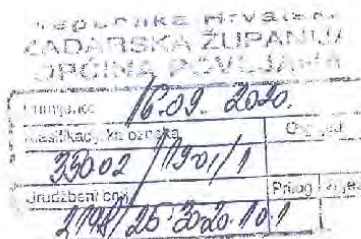 Republika Hrvatska
ZADARSKA ŽUPANIJA
OPĆINA POVLJANA
Primljeno 16.09. 2020.
Klasifikacijska oznaka
350-02 /19-01/1
Urudžbeni broj Prilog
2198/25-30-20-101